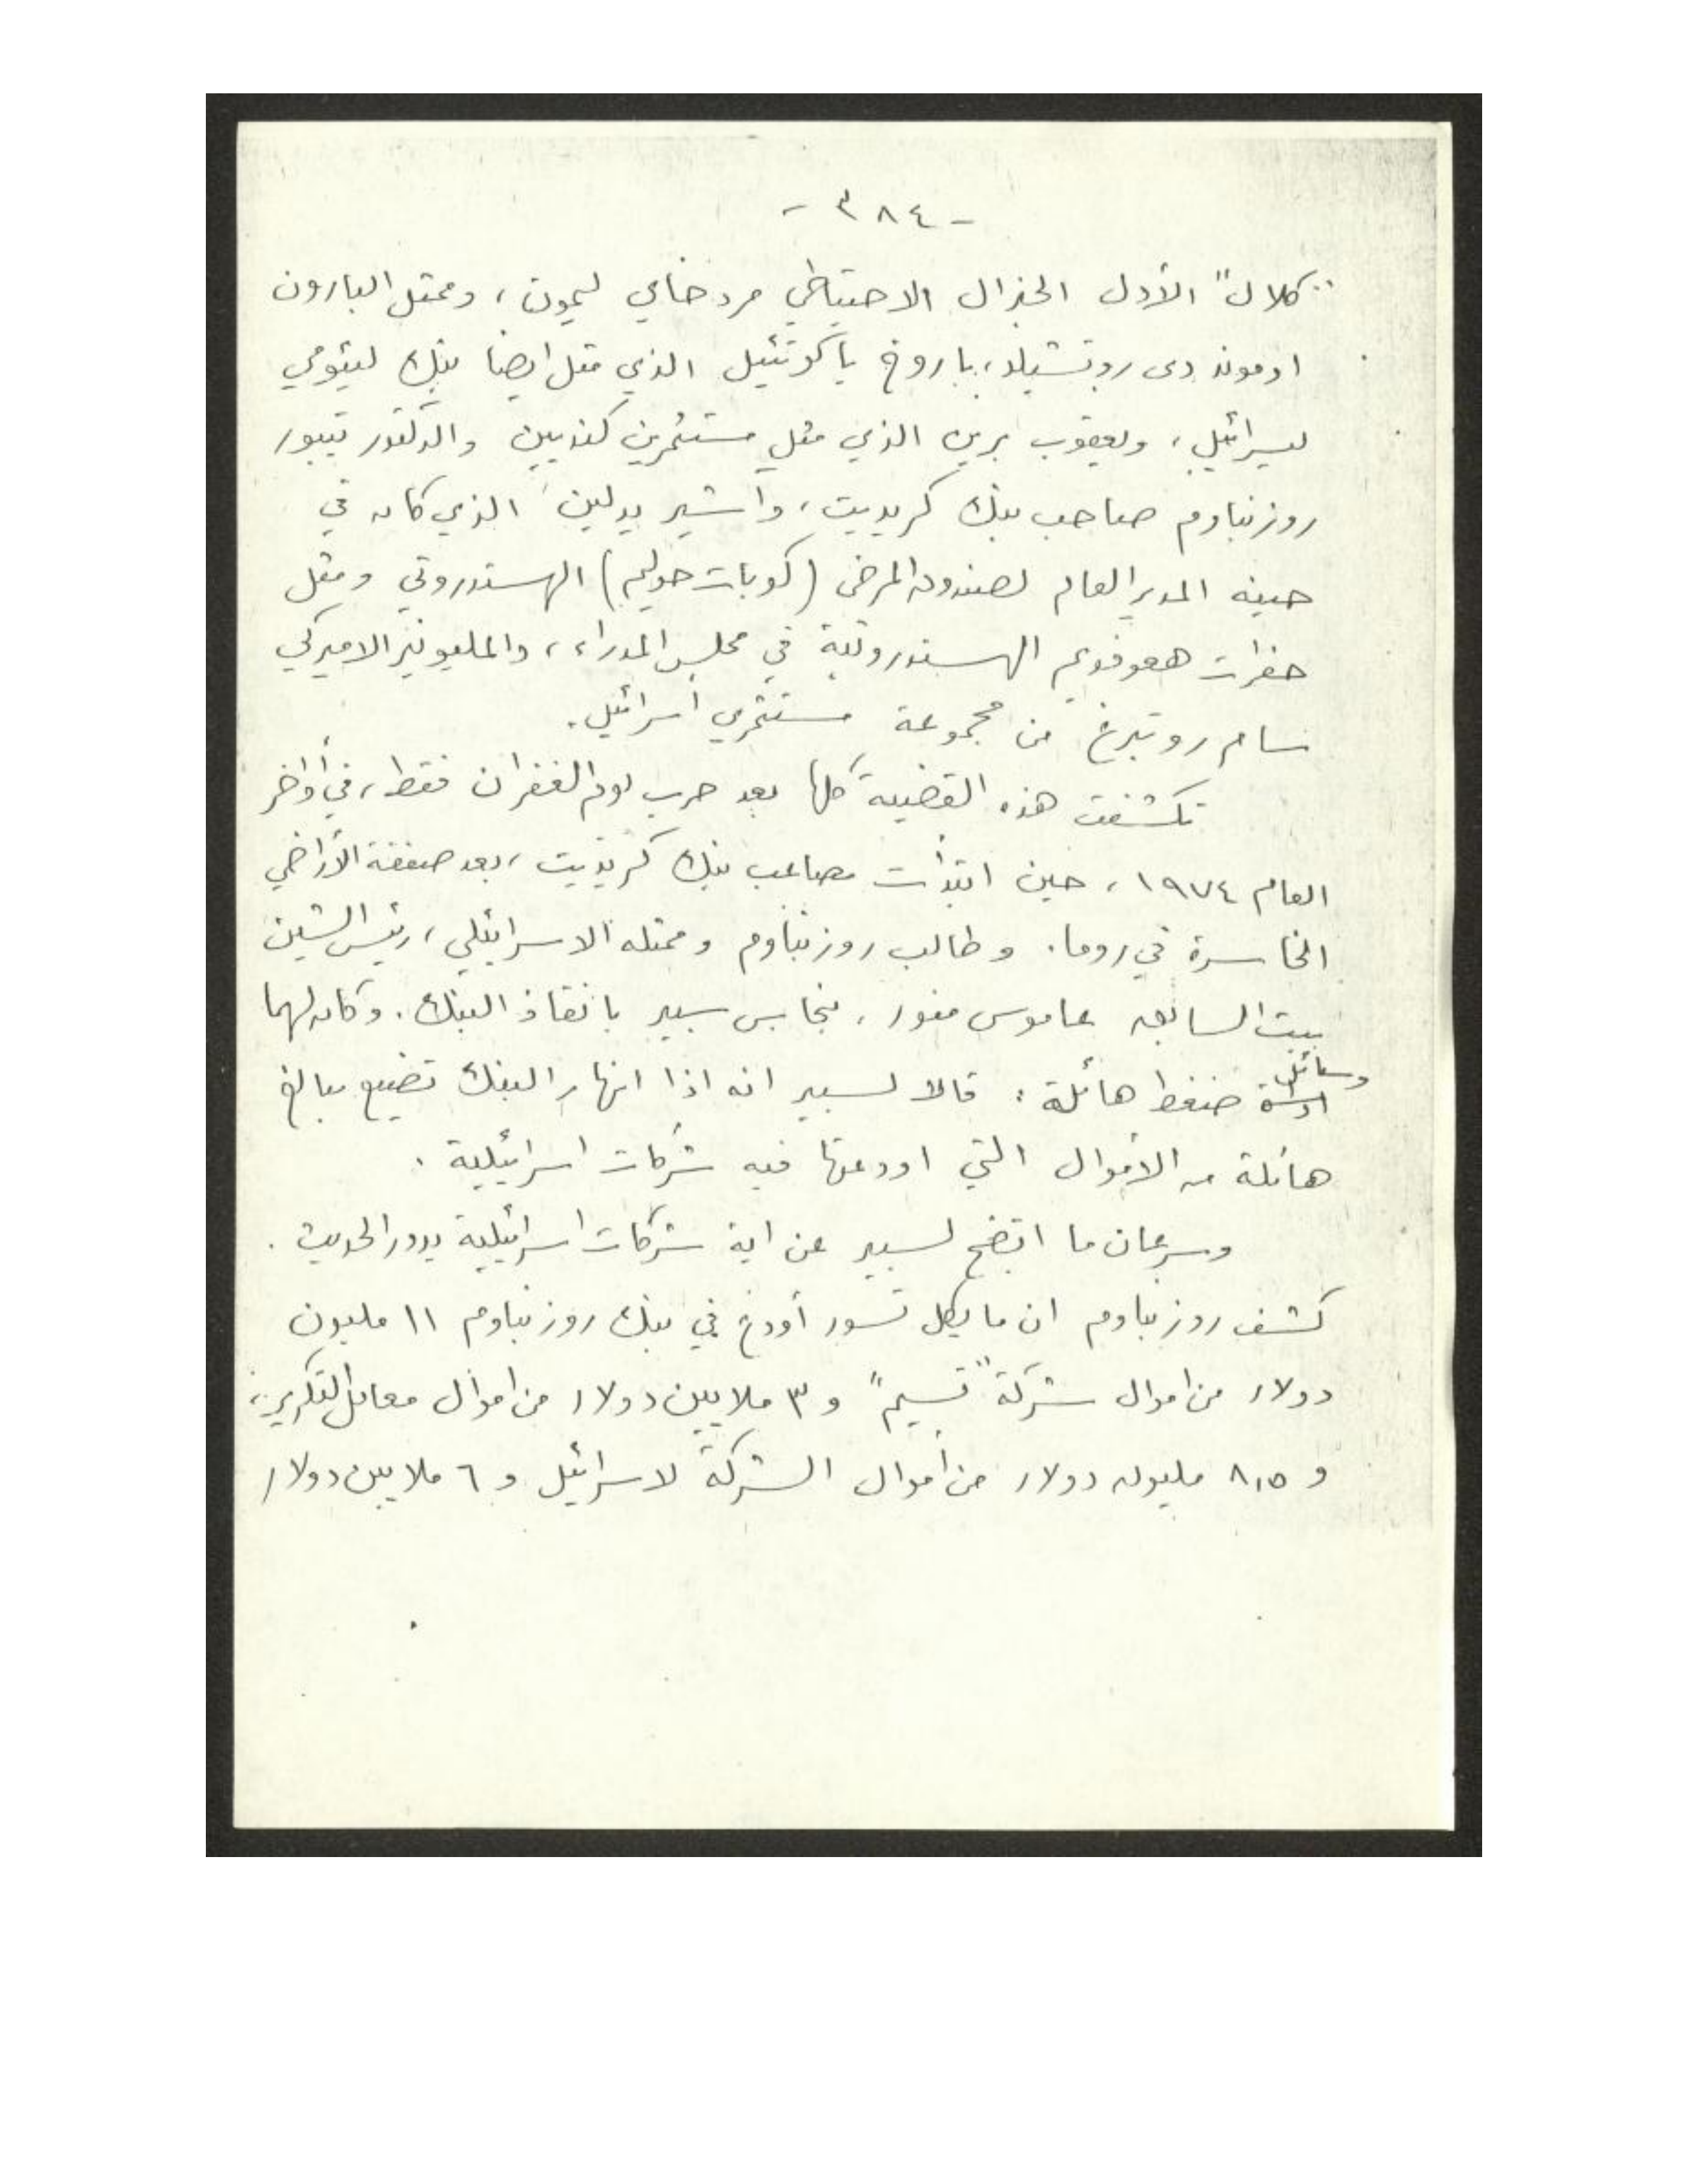 - ٣٨٤ -
"كلال" الأول الجنرال الاحتياطي مردخاي ليمون، وممثل البارون
ادموند دى روتشيلد، باروخ يأكوتئيل الذي مثل ايضا بنك ليئومي
ليسرائيل، ويعقوب برين الذي مثل مستثمرين كنديين والدكتور تيبور
روزنباوم صاحب بنك كريديت، وآشير يدلين الذي كان في
حينه المدير العام لصندوق المرضى (كوبات حوليم) الهستدروتي ومثل
حفرات هعوفديم الهستدروتية في مجلس المدراء، والمليونير الاميركي
سام روتبرغ من مجموعة مستثمري اسرائيل.
تكشفت هذه القضية كلها بعد حرب يوم الغفران فقط، في أواخر
العام ١٩٧٤، حين ابتدأت مصاعب بنك كريديت، بعد صفقة الأراضي
الخاسرة في روما. وطالب روزنباوم وممثله الاسرائيلي، رئيس الشين
بيت السابق عاموس منور، بنحاس سبير بانقاذ البنك. وكان لهما
وسائل
ضغط هائلة: قالا لسبير انه اذا انهار البنك تضيع مبالغ
هائلة من الاموال التي اودعتها فيه شركات اسرائيلية.
وسرعان ما اتضح لسبير عن اية شركات اسرائيلية يدور الحديث.
كشف روزنباوم ان مايكل تسور أودع في بنك روزنباوم ١١ مليون
دولار من اموال شركة "تسيم" و ٣ ملايين دولار من اموال معامل التكرير،
و ٨,٥ مليون دولار من أموال الشركة لاسرائيل و ٦ ملايين دولار